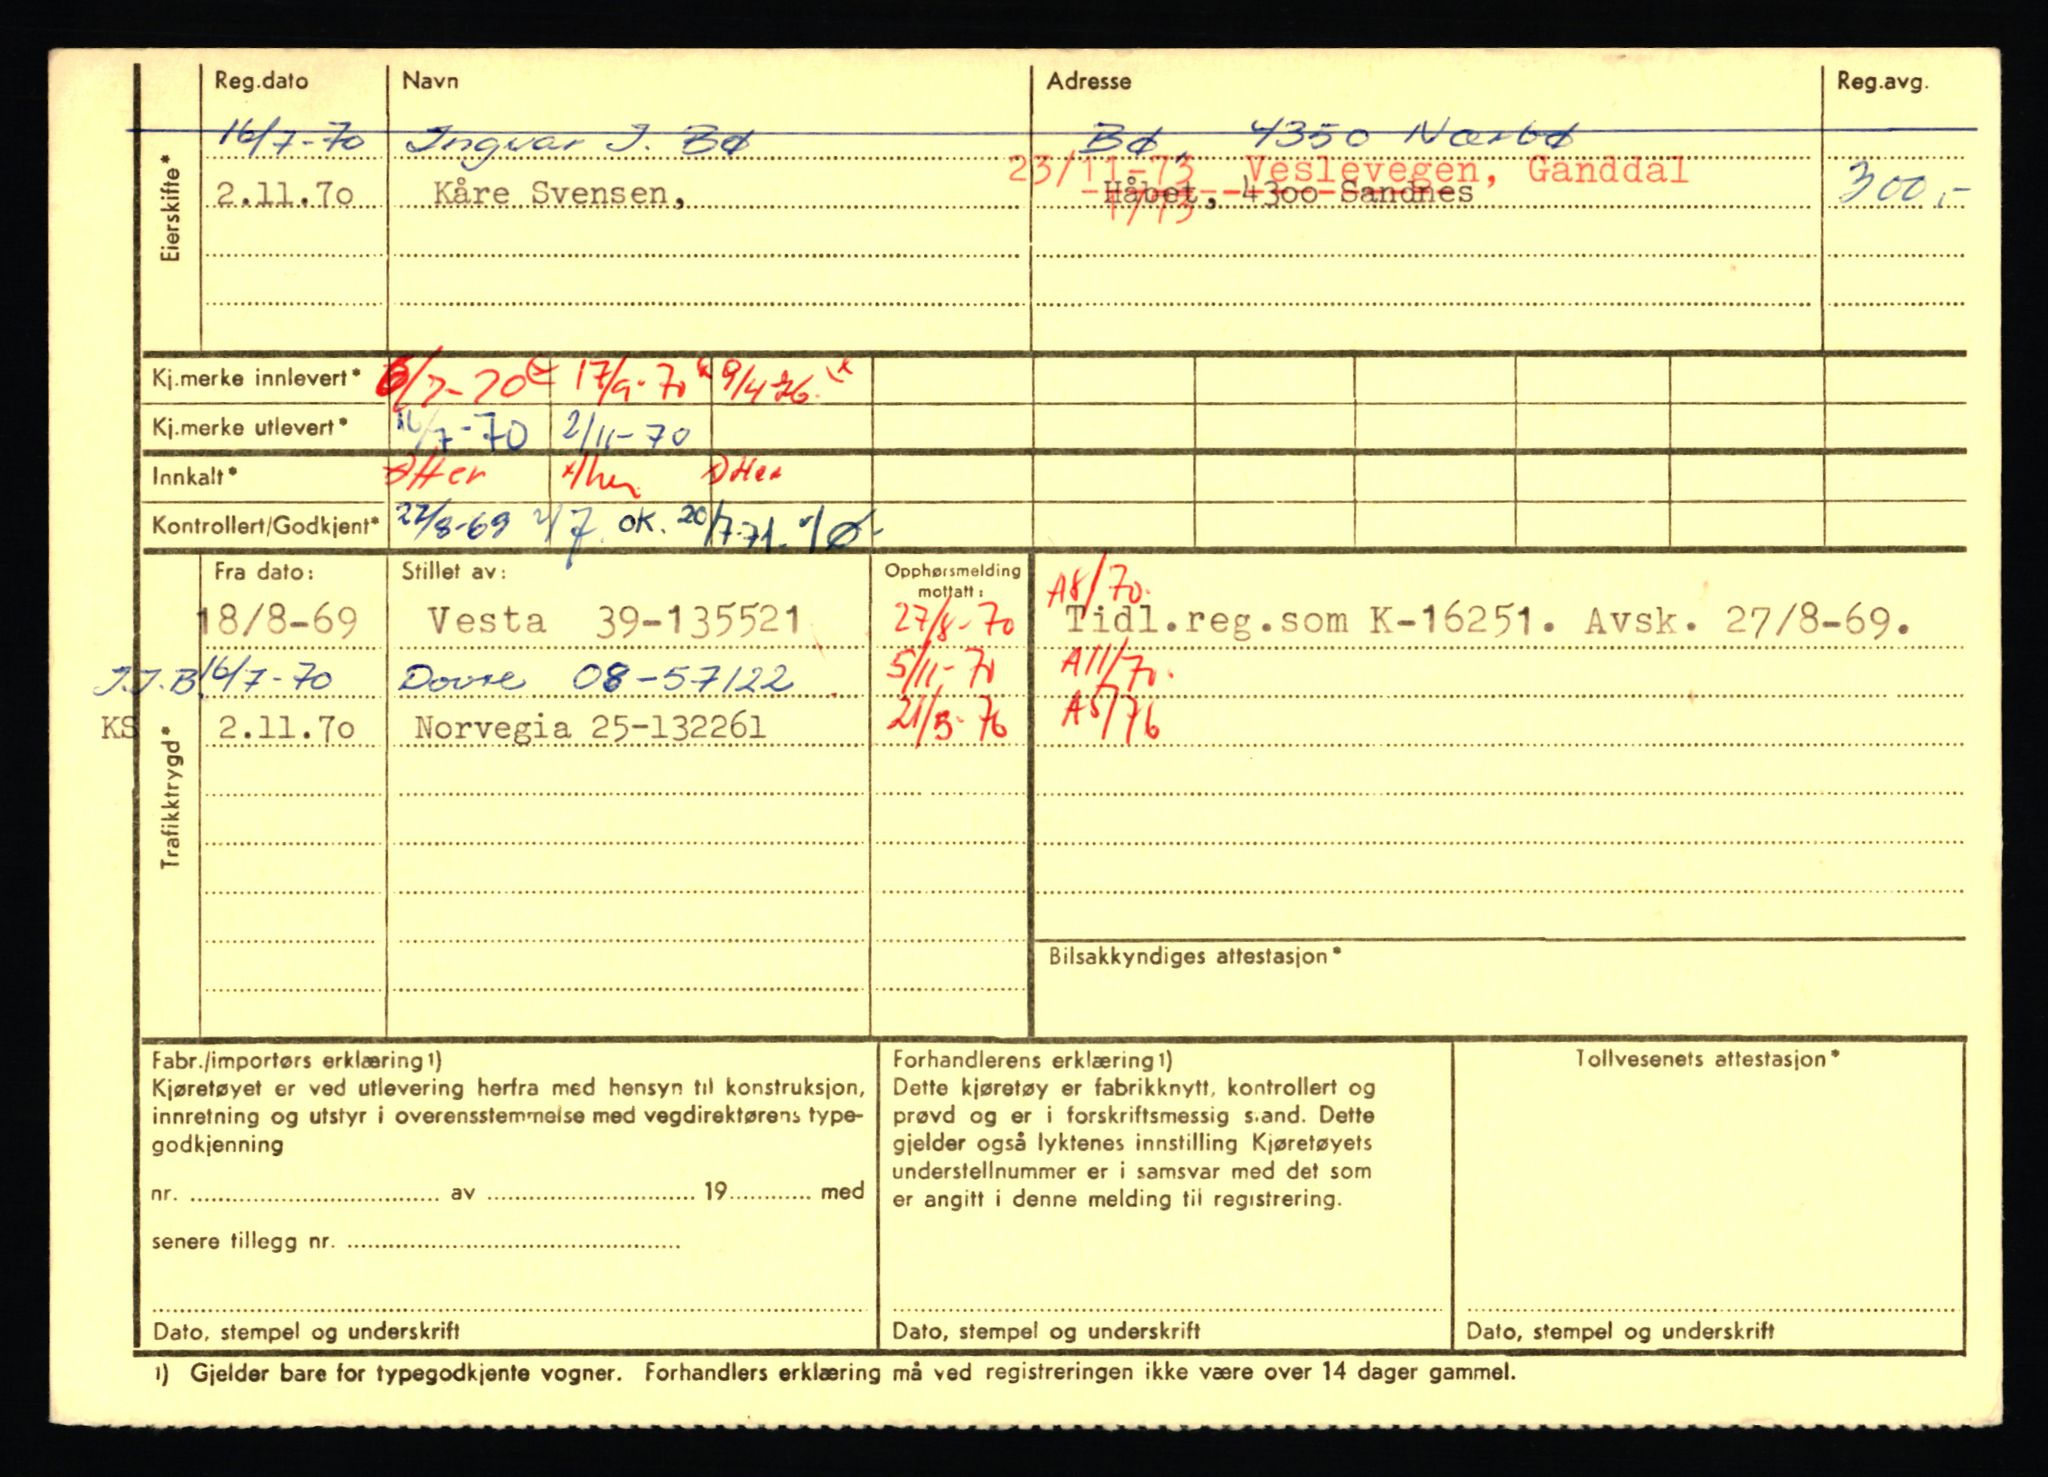 Reg.dato Navn Adresse Reg.avg.
16/7-70 Ingvar J. Bø Bø, 4350 Nærbø
23/11-73 Veslevegen, Ganddal
2.11.70 Kåre Svensen, Håbet, 4300 Sandnes 300,-
1/73
Eierskifte*
Kj.merke innlevert* 6/7-70 17/9-70 9/4-76
Kj.merke utlevert* 16/7-70 2/11-70
Innkalt*
Kontrollert/Godkjent* 22/8-69 OK. 20/7-71
Fra dato: Stillet av: Opphørsmelding mottatt:
A8/70.
18/8-69 Vesta 39-135521 27/8-70 Tidl.reg.som K-16251. Avsk. 27/8-69.
J.J.B. 16/7-70 Dovre 08-57122 5/11-70 A11/70.
KS 2.11.70 Norvegia 25-132261 21/5-76 A5/76
Trafikktrygd*
Bilsakkyndiges attestasjon*
Fabr./importørs erklæring1)
Kjøretøyet er ved utlevering herfra med hensyn til konstruksjon,
innretning og utstyr i overensstemmelse med vegdirektørens type-
godkjenning
nr. .......... av .......... 19.......... med
senere tillegg nr. ..........
Dato, stempel og underskrift
Forhandlerens erklæring1)
Dette kjøretøy er fabrikknytt, kontrollert og
prøvd og er i forskriftsmessig stand. Dette
gjelder også lyktenes innstilling Kjøretøyets
understellnummer er i samsvar med det som
er angitt i denne melding til registrering.
Dato, stempel og underskrift
Tollvesenets attestasjon*
Dato, stempel og underskrift
1) Gjelder bare for typegodkjente vogner. Forhandlers erklæring må ved registreringen ikke være over 14 dager gammel.